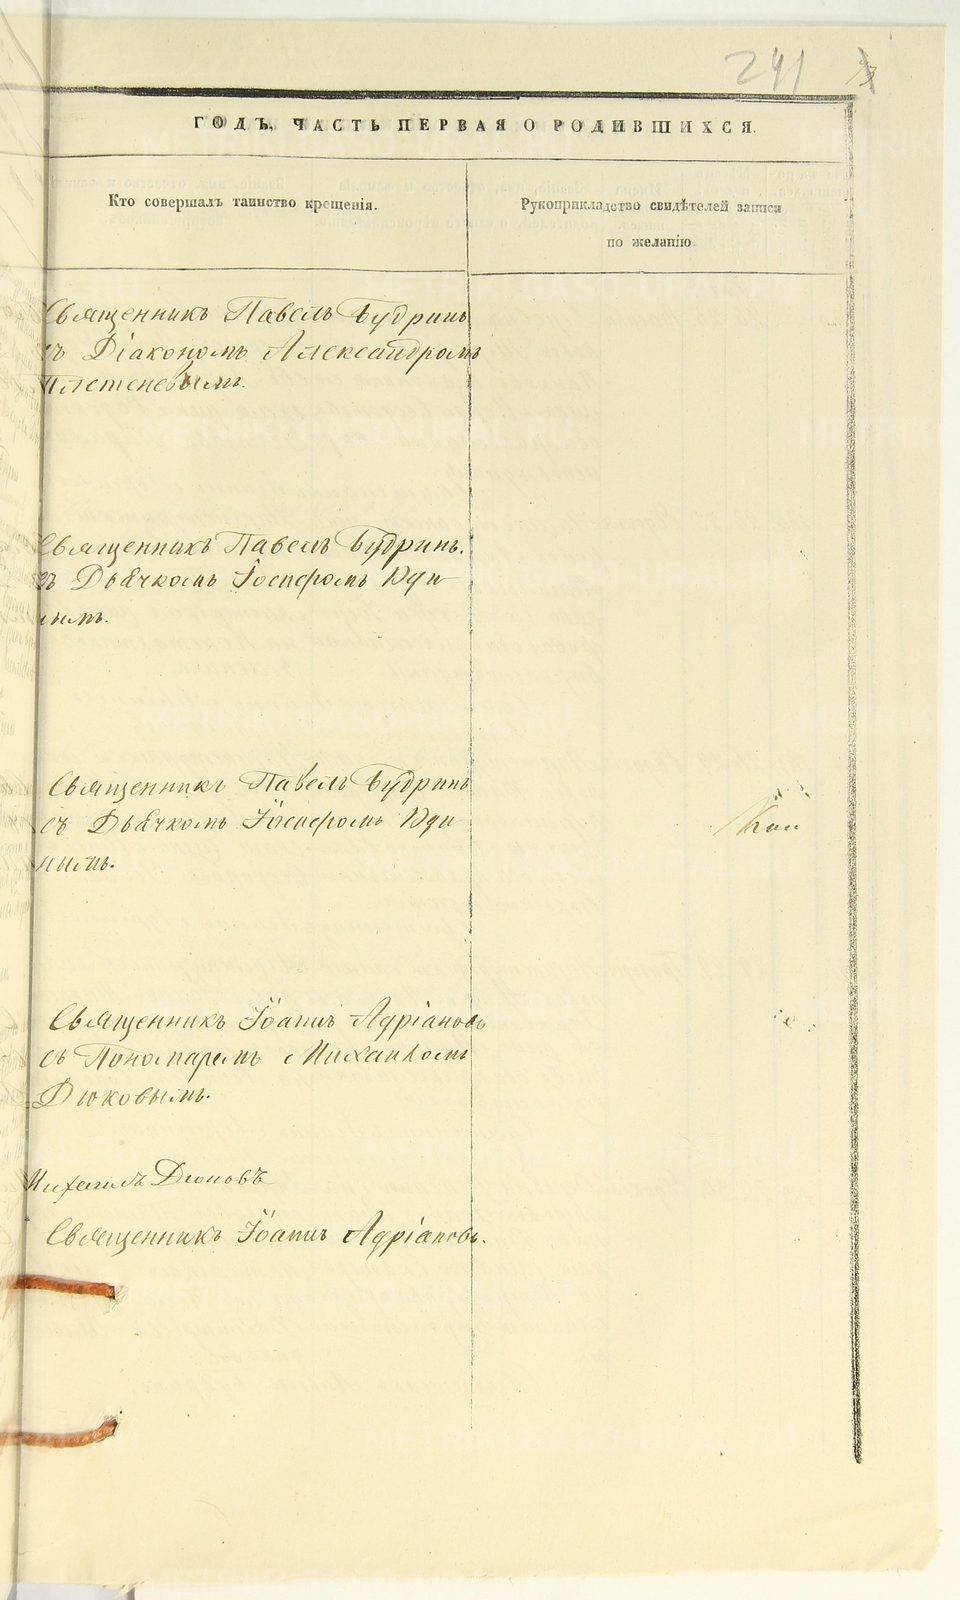 241
ГОДЪ, ЧАСТЬ ПЕРВАЯ О РОДИВШИХСЯ.
Кто совершалъ таинство крещенія.
Рукоприкладство свидѣтелей записи
по желанію
Священникъ Павелъ Будринъ
съ Діакономъ Александромъ
Плетеневымъ.
Священникъ Павелъ Будринъ.
съ Дьячкомъ Іосифомъ Юди
нымъ.
Священникъ Павелъ Будринъ
съ Дьячкомъ Іосифомъ Юди
нымъ.
Священникъ Іоаннъ Адріановъ
съ Пономаремъ Михаиломъ
Дюковымъ.
Михаилъ Дюковъ
Священникъ Іоаннъ Адріановъ.
METRIKI.GASO-URAL.RU